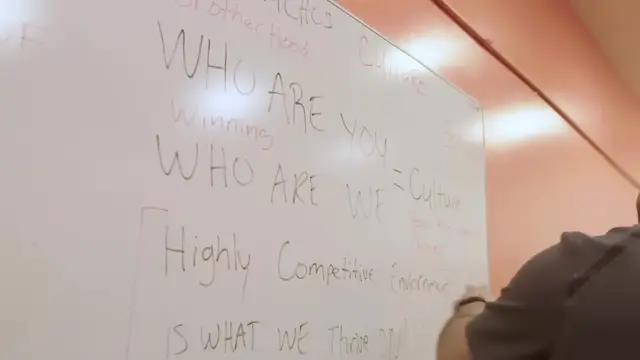 Brotherhood
Culture
WHO ARE YOU
Winning
WHO ARE WE = Culture
Highly Competitive
IS WHAT WE Thrive ON